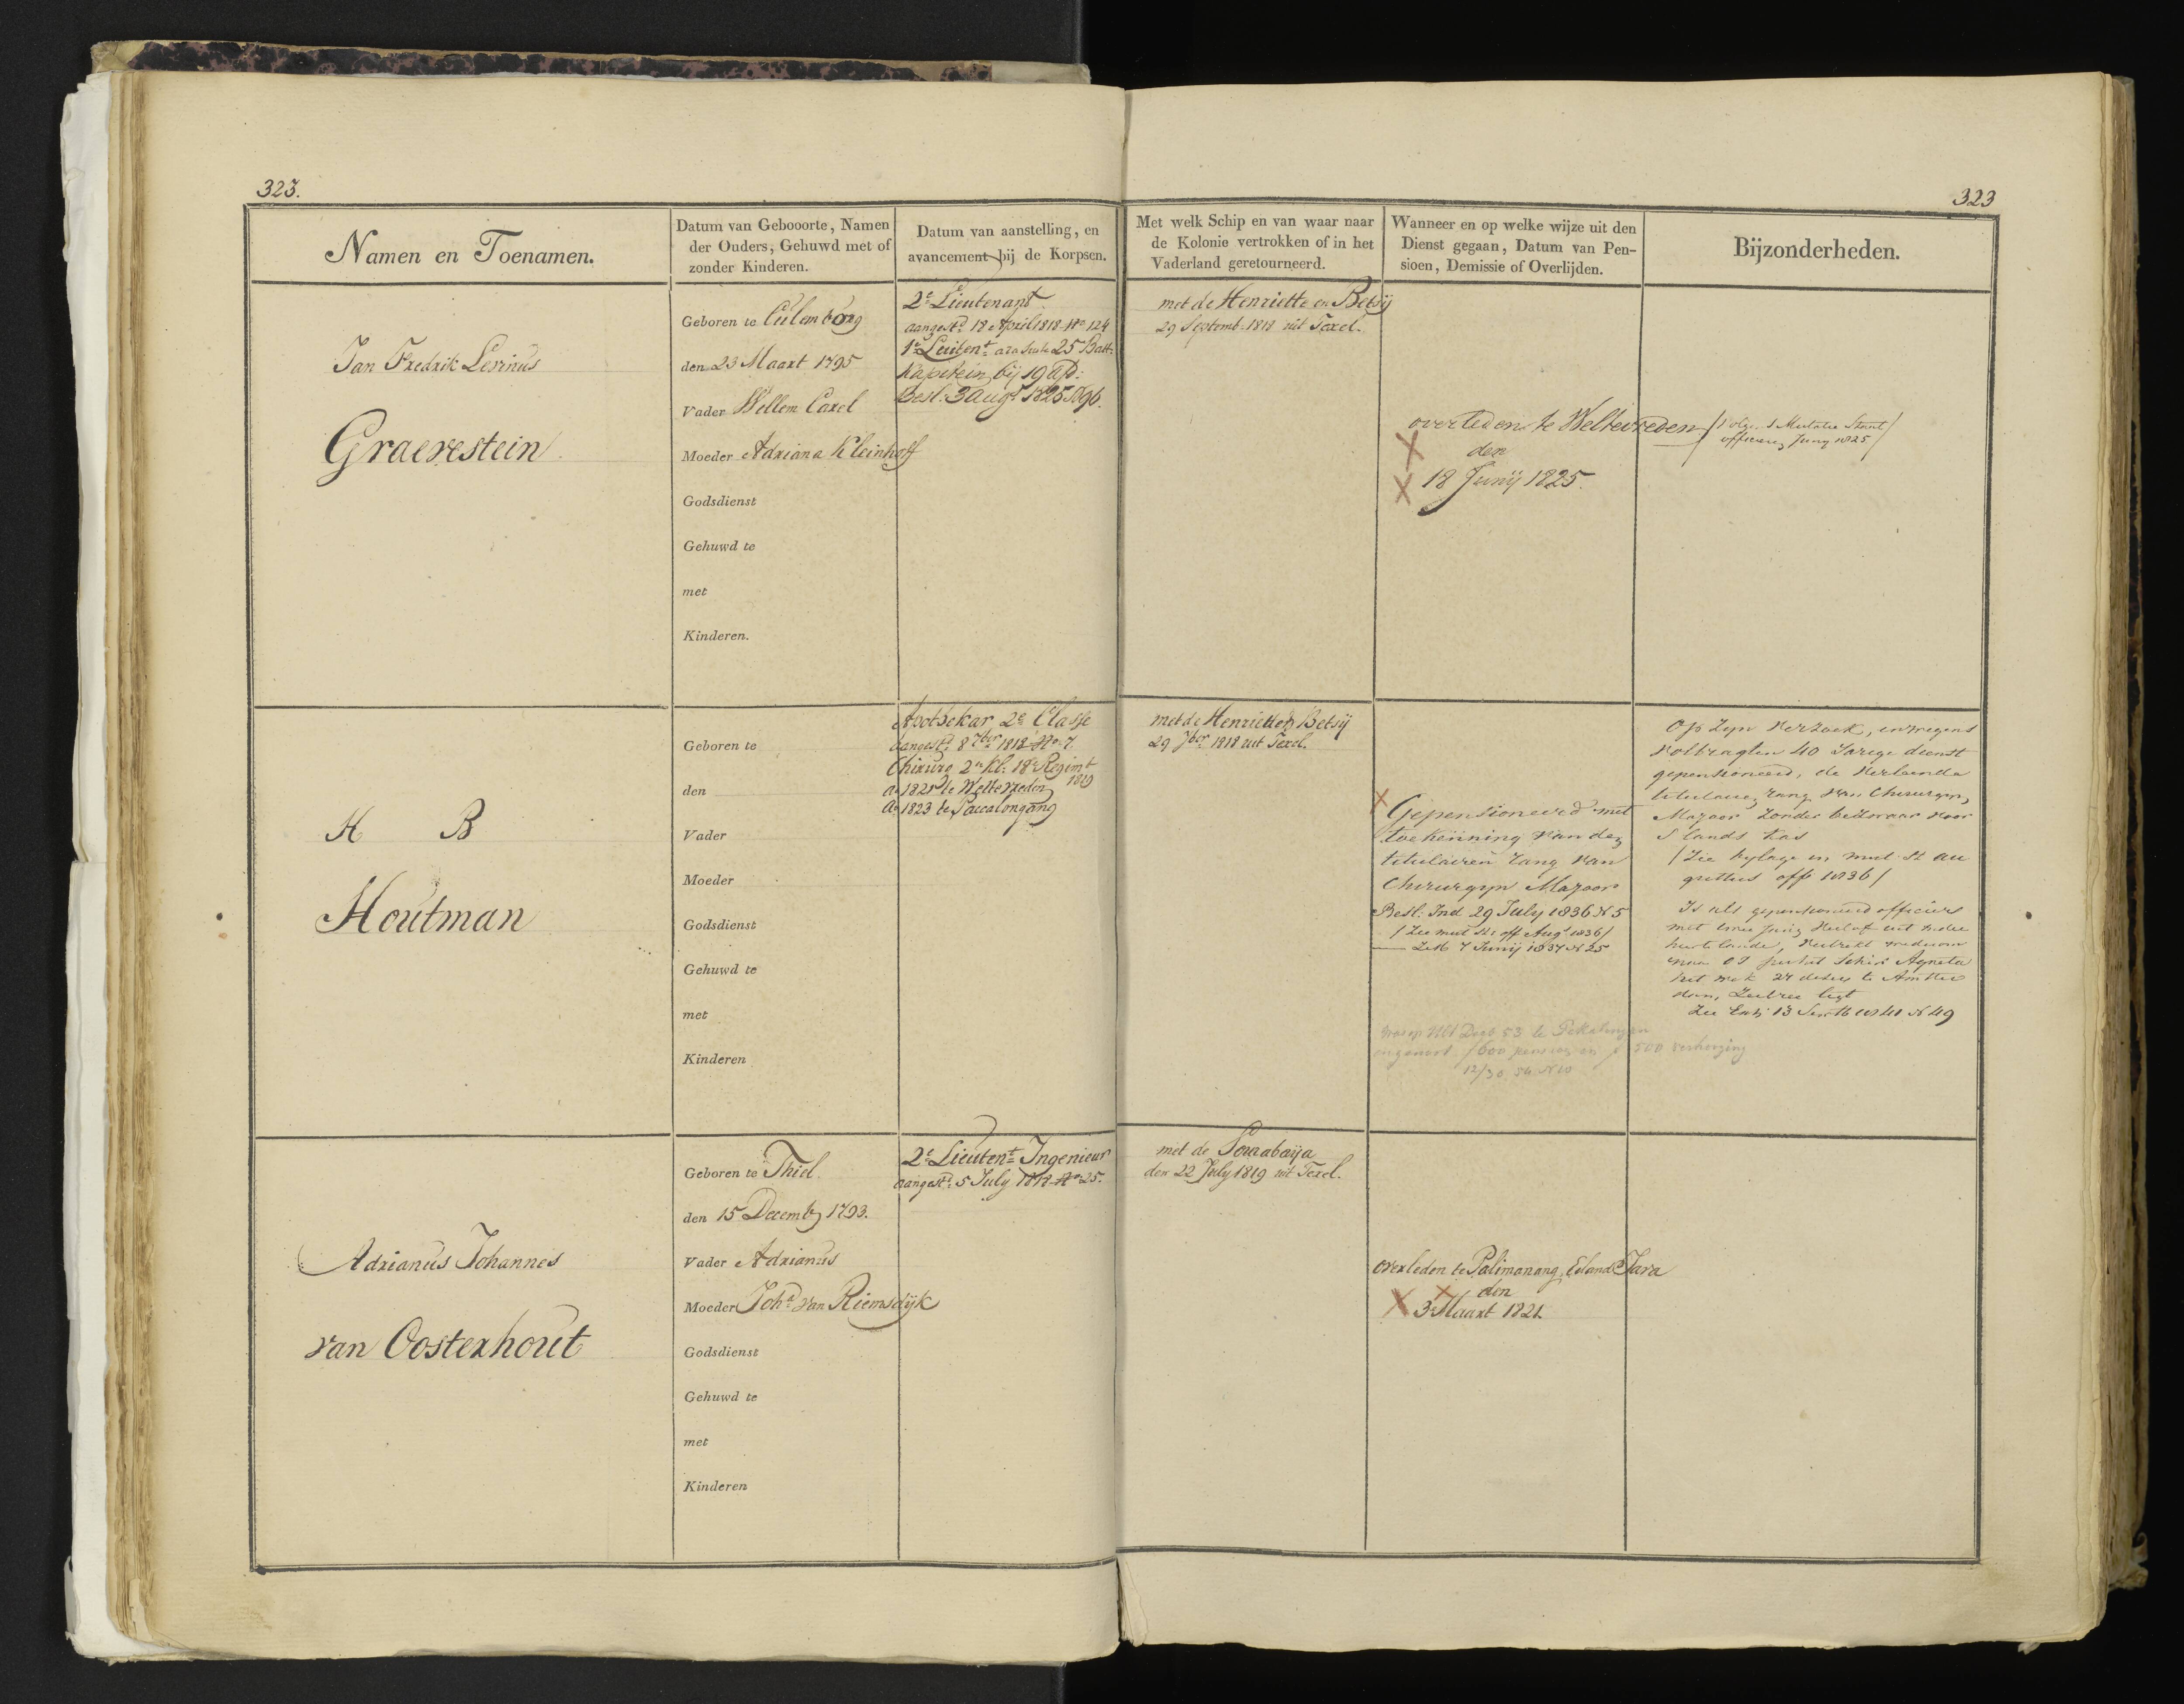 323.
323
Namen en Toenamen.
Datum van Gebooorte, Namen
der Ouders, Gehuwd met of
zonder Kinderen.
Datum van aanstelling, en
avancement bij de Korpsen.
Met welk Schip en van waar naar
de Kolonie vertrokken of in het
Vaderland geretourneerd.
Wanneer en op welke wijze uit den
Dienst gegaan, Datum van Pen-
sioen, Demissie of Overlijden.
Bijzonderheden.
Jan Fredrik Levinus
Graevestein
Geboren te Culemborg
den 23 Maart 1795
Vader Willem Carel
Moeder Adriana Kleinhoff
Godsdienst
Gehuwd te
met
Kinderen.
2e Lieutenant
aangestd 18 April 1818 No 124
1e Luitent 25 Batt:
Kapitein bij 19 afd:
Besl: 3 Augt 1825 No 96.
met de Henriette en Betsij
29 Septemb. 1818 uit Texel.
overleden te Weltevreden
den
18 Junij 1825.
/Volgs Mutatie Staat
officieren Juny 1825/
H B
Houtman
Geboren te
den
Vader
Moeder
Godsdienst
Gehuwd te
met
Kinderen
Apothekar 2e Classe
aangestd 8 7ber 1818 No 7.
Chirurg 2e Kl: 18e Regimt
1819
Ao 1821 te Weltevreden
Ao 1823 te Paccalongang
met de Henriette en Betsij
29 7ber 1818 uit Texel.
Gepensioneerd met
toekenning van den
titulairen rang van
Chirurgyn Majoor
Besl: Ind 29 July 1836 N 5
/Zie mut St: off Augt 1836/
7 Junij 1837 N 25
was op Ult Decb 53 te Pekalongan
f 600 pensioen en f 500 verhoging
12/30 54 N 10
Op zyn verzoek, en wegens
volbragten 40 Jarige dienst
gepensioneerd, de verleende
titulairen rang van Chirurgyn
Majoor zonder bezwaar voor
S lands kas
/Zie bylage in mut: St au
gustus off 1836/
Is als gepensioneerd officier
met twee jarig verlof uit Indie
hier te lande, vertrekt wederom
naar OI per het Schip Agneta
het welk 24 dezer te Amster
dam, Zeilree ligt
N 49
Adrianus Johannes
van Oosterhout
Geboren te Thiel.
den 15 Decemb 1793.
Vader Adrianus
Moeder Joha van Riemsdijk
Godsdienst
Gehuwd te
met
Kinderen
2e Lieutent Ingenieur
aangestd 5 July 1818 No 25.
met de Sourabaija
den 22 July 1819 uit Texel.
overleden te Palimanang, Eiland Java
den
3 Maart 1821.